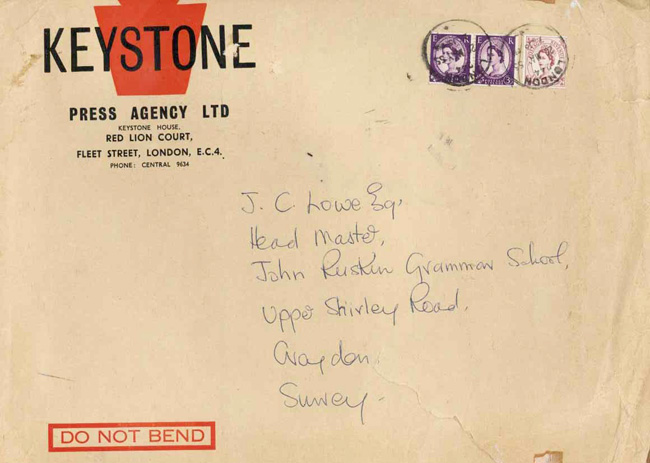 KEYSTONE
PRESS AGENCY LTD
KEYSTONE HOUSE,
RED LION COURT,
FLEET STREET, LONDON, E.C.4.
PHONE: CENTRAL 9634
LONDON
J. C. Lowe Esq.
Head Master,
John Ruskin Grammar School,
Upper Shirley Road,
Croydon.
Surrey.
DO NOT BEND